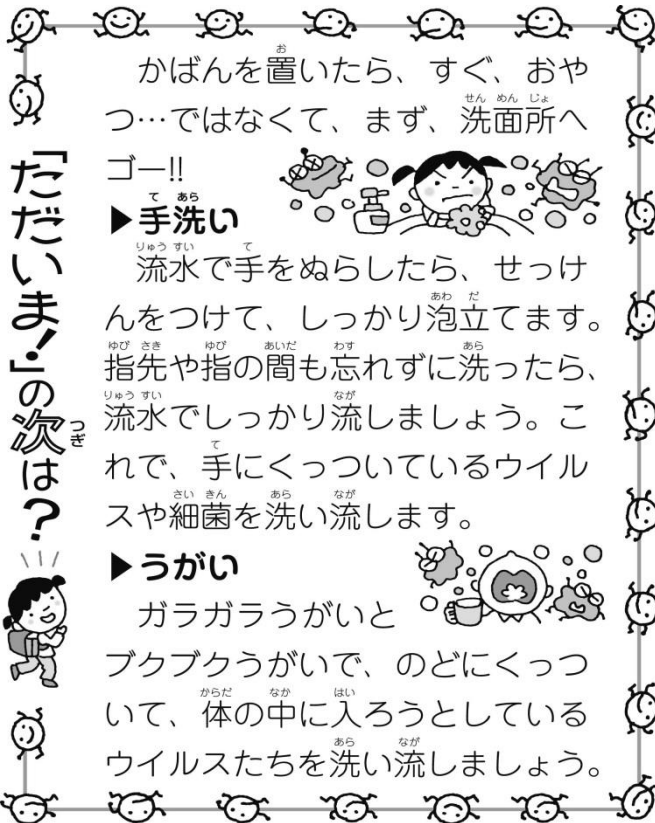 「ただいま!」の次は?
かばんを置いたら、すぐ、おや
つ…ではなくて、まず、洗面所へ
ゴー!!
▶手洗い
流水で手をぬらしたら、せっけ
んをつけて、しっかり泡立てます。
指先や指の間も忘れずに洗ったら、
流水でしっかり流しましょう。こ
れで、手にくっついているウイル
スや細菌を洗い流します。
▶うがい
ガラガラうがいと
ブクブクうがいで、のどにくっつ
いて、体の中に入ろうとしている
ウイルスたちを洗い流しましょう。